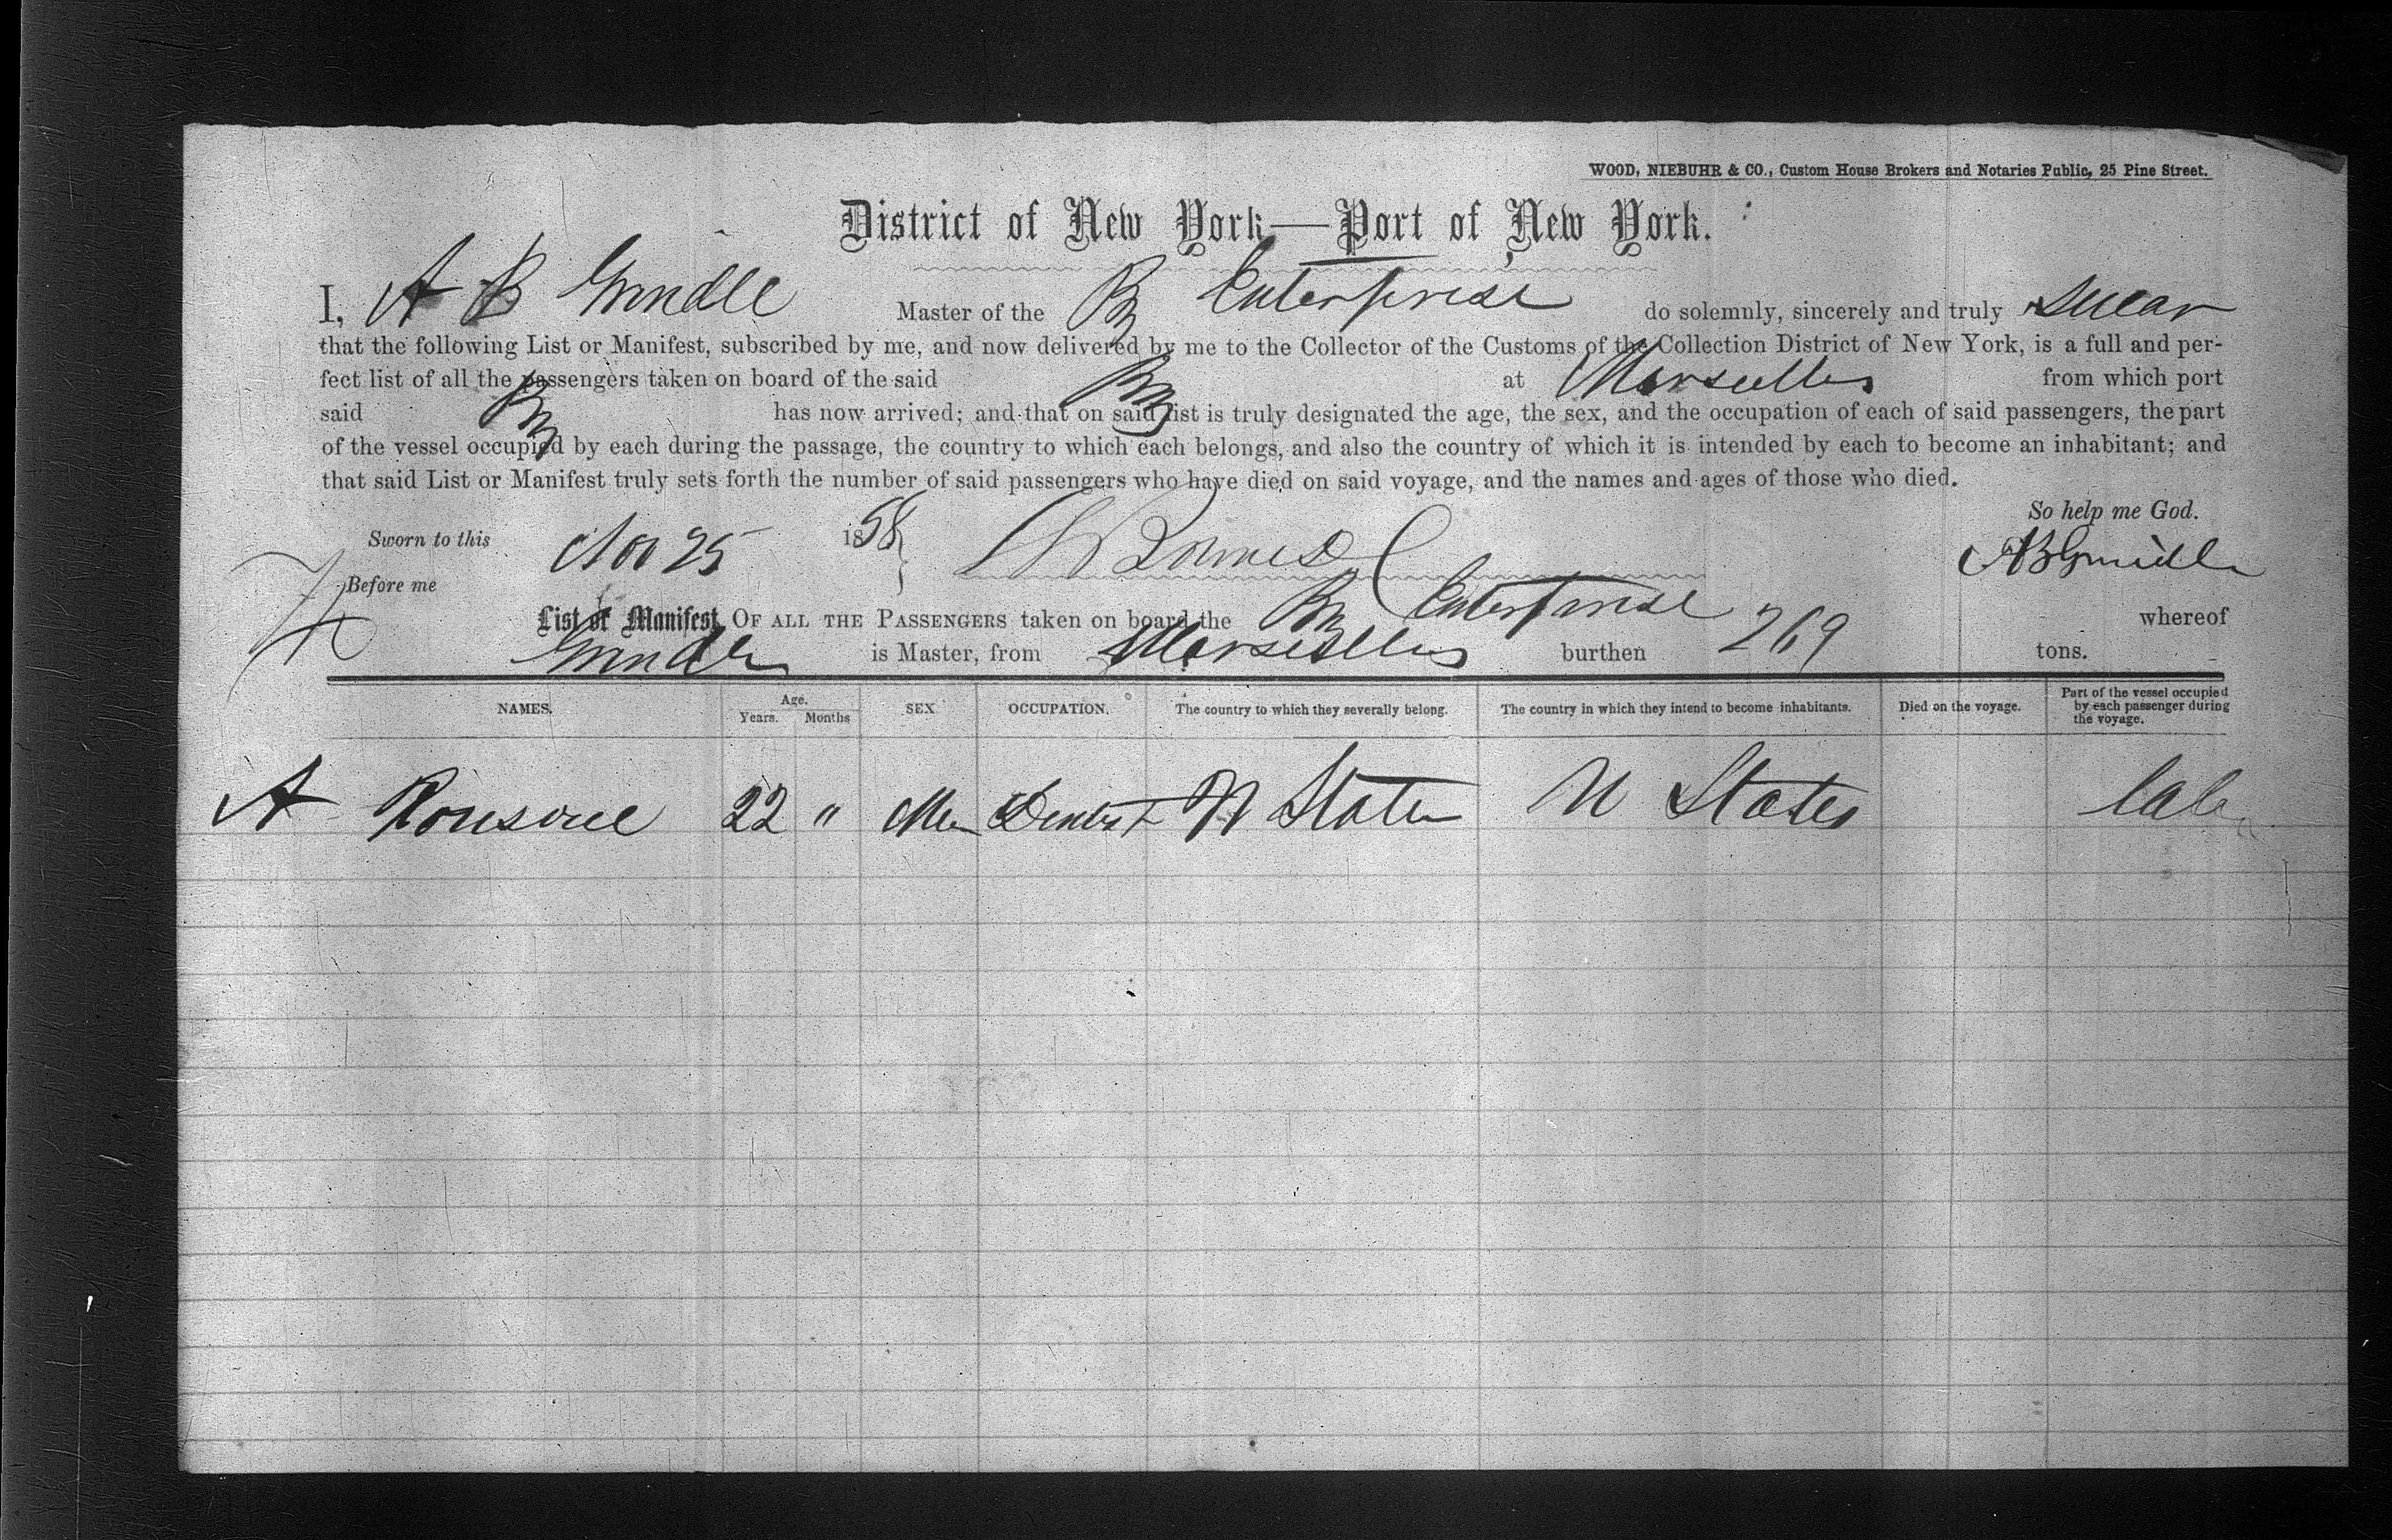 WOOD, NIEBUHR & CO., Custom House Brokers and Notaries Public, 25 Pine Street.
District of New York—Port of New York.
I, A B Grindle Master of the Brg Enterprise do solemnly, sincerely and truly swear
that the following List or Manifest, subscribed by me, and now delivered by me to the Collector of the Customs of the Collection District of New York, is a full and per-
fect list of all the passengers taken on board of the said Brg at Marseilles from which port
said Brg has now arrived; and that on said list is truly designated the age, the sex, and the occupation of each of said passengers, the part
of the vessel occupied by each during the passage, the country to which each belongs, and also the country of which it is intended by each to become an inhabitant; and
that said List or Manifest truly sets forth the number of said passengers who have died on said voyage, and the names and ages of those who died.
So help me God.
Sworn to this Nov 25 1858 A B Grindle
Before me
List or Manifest OF ALL THE PASSENGERS taken on board the Brg Enterprise whereof
Grindle is Master, from Marseilles burthen 269 tons.
NAMES. Age. Years. Months SEX OCCUPATION. The country to which they severally belong. The country in which they intend to become inhabitants. Died on the voyage. Part of the vessel occupied by each passenger during the voyage.
A 22 " Dentist U States U States